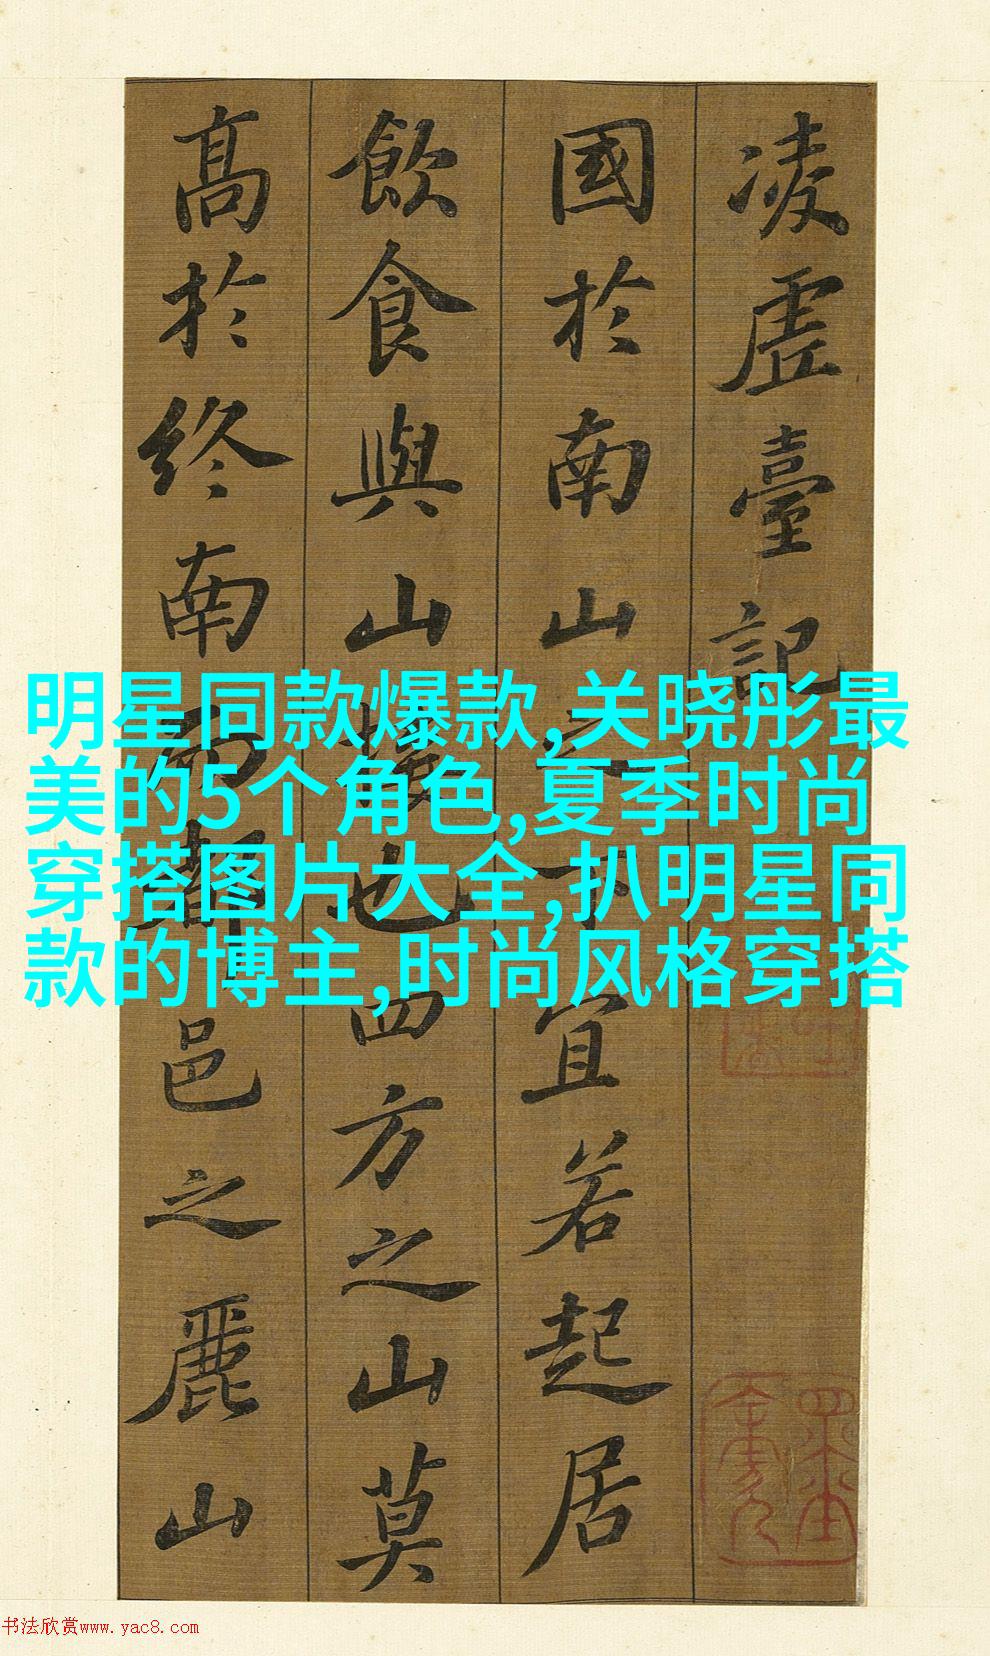 凌虛臺記
國於南山之下宜若起居
飲食與山接也四方之山莫
高於終南而都邑之麗山
明星同款爆款,关晓彤最
美的5个角色,夏季时尚
穿搭图片大全,扒明星同
款的博主,时尚风格穿搭
书法欣赏www.yac8.com